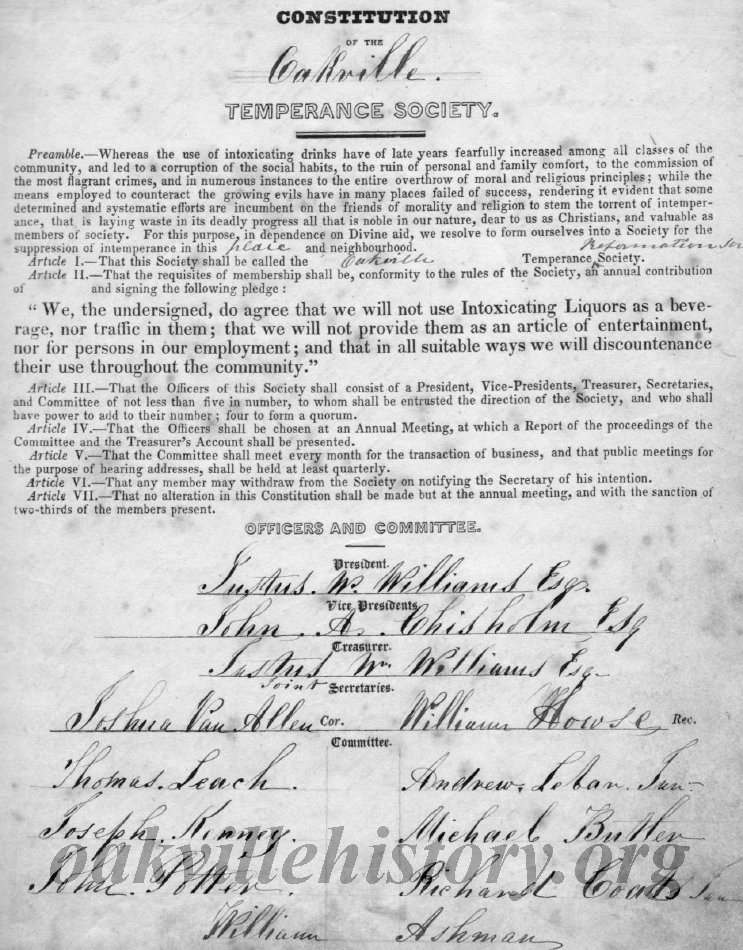 CONSTITUTION
OF THE
Oakville.
TEMPERANCE SOCIETY.
Preamble.—Whereas the use of intoxicating drinks have of late years fearfully increased among all classes of the
community, and led to a corruption of the social habits, to the ruin of personal and family comfort, to the commission of
the most flagrant crimes, and in numerous instances to the entire overthrow of moral and religious principles; while the
means employed to counteract the growing evils have in many places failed of success, rendering it evident that some
determined and systematic efforts are incumbent on the friends of morality and religion to stem the torrent of intemper-
ance, that is laying waste in its deadly progress all that is noble in our nature, dear to us as Christians, and valuable as
members of society. For this purpose, in dependence on Divine aid, we resolve to form ourselves into a Society for the
suppression of intemperance in this place and neighbourhood. Reformation
Article I.—That this Society shall be called the Oakville Temperance Society.
Article II.—That the requisites of membership shall be, conformity to the rules of the Society, an annual contribution
of and signing the following pledge :
"We, the undersigned, do agree that we will not use Intoxicating Liquors as a beve-
rage, nor traffic in them; that we will not provide them as an article of entertainment,
nor for persons in our employment; and that in all suitable ways we will discountenance
their use throughout the community."
Article III.—That the Officers of this Society shall consist of a President, Vice-Presidents, Treasurer, Secretaries,
and Committee of not less than five in number, to whom shall be entrusted the direction of the Society, and who shall
have power to add to their number; four to form a quorum.
Article IV.—That the Officers shall be chosen at an Annual Meeting, at which a Report of the proceedings of the
Committee and the Treasurer's Account shall be presented.
Article V.—That the Committee shall meet every month for the transaction of business, and that public meetings for
the purpose of hearing addresses, shall be held at least quarterly.
Article VI.—That any member may withdraw from the Society on notifying the Secretary of his intention.
Article VII.—That no alteration in this Constitution shall be made but at the annual meeting, and with the sanction of
two-thirds of the members present.
OFFICERS AND COMMITTEE.
President.
Justus. W. Williams Esq.
Vice Presidents
John. A. Chisholm Esq
Treasurer.
Justus Wm Williams Esq.
Joint Secretaries.
Joshua Van Allen Cor. William Howse Rec.
Committee.
Thomas. Leach. Andrew. Letar. Jun-
Joseph. Kenney. Michael Butler
oakvillehistory.org
John. Potter. Richard Coads Jun-
William Ashman